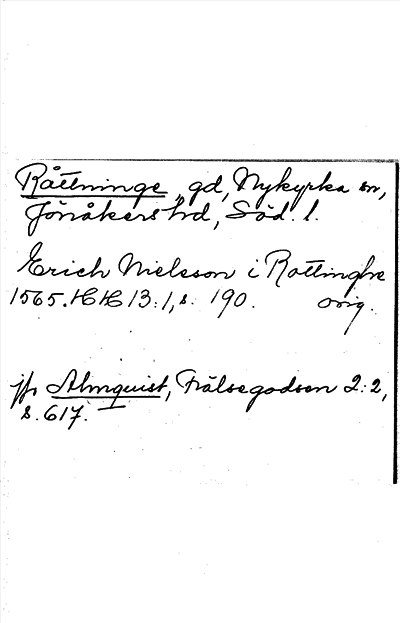 Råttninge, gd, Nykyrka sn,
Jönåkers hd, Söd. l.
Erich Nielsson i Rottinghe
1565. HH 13:1, s. 190. orig.
jfr Almquist, Frälsegodsen 2:2,
s. 617.